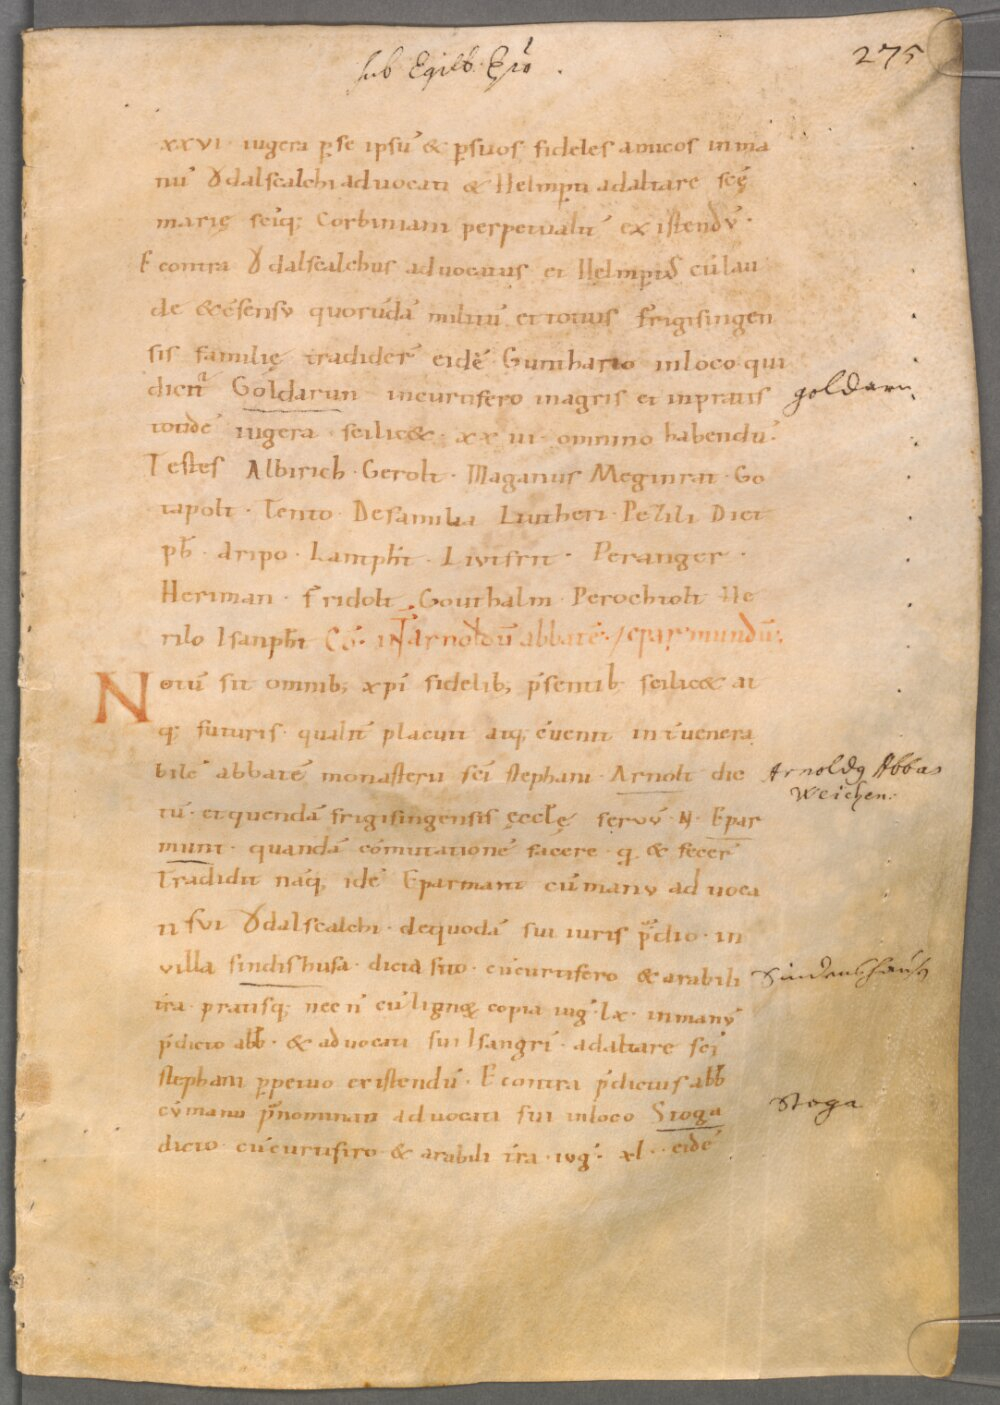 sub Egilb. Epo.
275
xxvi · iugera p̱ se ipsū & p̱ suos fideles amicos in ma
nū Ȣdalscalchi aduocati & Helmpti ad altare scę̄
marię sciq; Corbiniani perpetualit̄ existendū ·
E contra Ȣdalscalchus aduocatus et Helmpt cū lau
de & c̄sensu quorundā militū et totius frigisingen
sis familię tradider̄ eidē Gunthario in loco qui
dicit̄ Goldarun in curtifero in agris et in pratis
goldarn.
totidē iugera · scilic& · xx · iii · omnino habendū.
Testes Albirich · Gerolt · Maganus Meginrat · Go
tapolt · Tento · De familia Liutheri · Pezili Diet
pħ · Aripo · Lampħt · Liutfrit · Peranger ·
Heriman · Fridolt · Gouthalm · Perochtolt He
rilo Isanpħt Cō · int̄ Arnoldū abbatē · / eparmundū.
Notū sit omnib; xp̄i fidelib; p̄sentib scilic& at
q; futuris · qualit̄ placuit atq; euenit int̄ uenera
bilē abbatē monasterii sc̄i stephani · Arnolt dic
Arnoldꝰ Abbas
Weichen.
tū · et quendā frigisingensis ęcclę seruū · N · Epar
munt · quandā cōmutationē facere · q̄ & fecer̄
Tradidit nāq; idē Eparmant cū manu aduoca
ti sui Ȣdalscalchi · de quodā sui iuris p̄dio · in
uilla sindishusa · dicta sito · cū curtifero & arabili
Sindenshausn
t̄ra · pratisq; nec n̄ cū lignoꝝ copia iuḡ · lx · in manū
p̄dicto abb̄ · & aduocati sui Isangrī · ad altare sc̄i
stephani p̱petuo existendū · E contra p̄dictus abb̄
cū manu p̄nominati aduocati sui in loco Stoga
Stoga
dicto · cū curtifero · & arabili t̄ra · iuḡ · xl · · eidē